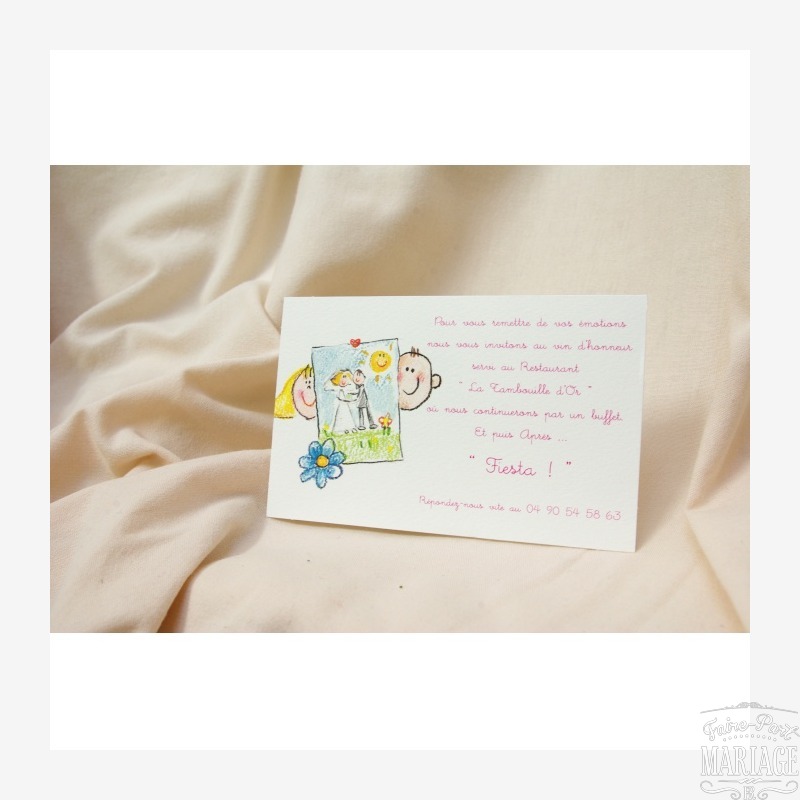 Pour vous remettre de vos émotions
nous vous invitons au vin d'honneur
servi au Restaurant
" La Tambouille d'Or "
où nous continuerons par un buffet.
Et puis Après ...
" Fiesta ! "
Répondez-nous vite au 04 90 54 58 63
Faire-Part
MARIAGE